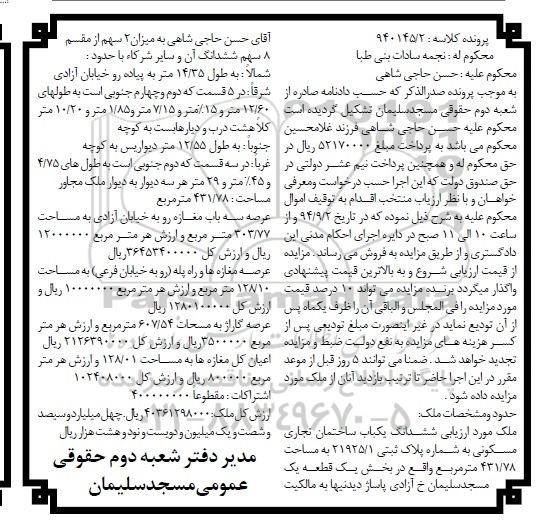 پرونده کلاسه : ۹۴۰۱۴۵/۲
محکوم له : نجمه سادات بنی طبا
محکوم علیه : حسن حاجی شاهی
به موجب پرونده صدرالذکر که حسب دادنامه صادره از
شعبه دوم حقوقی مسجدسلیمان تشکیل گردیده است
محکوم علیه حسن حاجی شاهی فرزند غلامحسین
محکوم می باشد به پرداخت مبلغ ۵۲۱۷۰۰۰۰ ریال در
حق محکوم له و همچنین پرداخت نیم عشر دولتی در
حق صندوق دولت که این اجرا حسب درخواست ومعرفی
خواهان و با نظر ارزیاب منتخب اقدام به توقیف اموال
محکوم علیه به شرح ذیل نموده که در تاریخ ۹۴/۹/۲ و از
ساعت ۱۰ الی ۱۱ صبح در دایره اجرای احکام مدنی این
دادگستری و از طریق مزایده به فروش می رساند . مزایده
از قیمت ارزیابی شروع و به بالاترین قیمت پیشنهادی
واگذار میگردد برنده مزایده می تواند ۱۰ درصد قیمت
مورد مزایده را فی المجلس و الباقی آن را ظرف یکماه پس
از آن تودیع نماید در غیر اینصورت مبلغ تودیعی پس از
کسر هزینه های مزایده به نفع دولت ضبط و مزایده
تجدید خواهد شد. ضمنا می توانند ۵ روز قبل از موعد
مقرر در این اجرا حاضر تا ترتیب بازدید آنان از ملک مورد
مزایده داده شود .
حدود ومشخصات ملک:
ملک مورد ارزیابی ششدانگ یکباب ساختمان تجاری
مسکونی به شماره پلاک ثبتی ۲۱۹۲۵/۱ به مساحت
۴۳۱/۷۸ مترمربع واقع در بخش یک قطعه یک
مسجدسلیمان خ آزادی پاساژ دیدنیها به مالکیت
آقای حسن حاجی شاهی به میزان۲ سهم از مقسم
۸ سهم ششدانگ آن و سایر شرکاء با حدود :
شمالاً : به طول ۱۴/۳۵ متر به پیاده رو خیابان آزادی
شرقاً : در ۵ قسمت که دوم وچهارم جنوبی است به طولهای
۱۲/۶۰ متر و ۱۵٪متر و ۷/۱۵ متر و۱/۸۵ متر و ۱۰/۲۰ متر
کلاً هشت درب و دیوارهاست به کوچه
جنوباً : به طول ۱۲/۵۵ متر دیواریس به کوچه
غرباً : در سه قسمت که دوم جنوبی است به طول های ۴/۷۵
و ۴۵٪ متر و ۲۹ متر هر سه دیوار به دیوار ملک مجاور
مساحت : ۴۳۱/۷۸ مترمربع
عرصه سه باب مغازه رو به خیابان آزادی به مساحت
۳۰۳/۷۷ متر مربع و ارزش هر متر مربع ۱۲۰۰۰۰۰۰
ریال و ارزش کل ۳۶۴۵۳۴۰۰۰۰ریال
عرصه مغازه ها و راه پله (رو به خیابان فرعی) به مساحت
۱۲۸/۱۰ متر مربع و ارزش هر متر مربع ۱۰۰۰۰۰۰۰ ریال و
ارزش کل ۱۲۸۰۱۰۰۰۰۰ ریال
عرصه گاراژ به مساحت ۶۰۷/۵۴ مترمربع و ارزش هر متر
مربع ۳۵۰۰۰۰۰ریال و ارزش کل ۲۱۲۶۳۹۰۰۰۰ ریال
اعیان کل مغازه ها به مساحت ۱۲۸/۰۱ و ارزش هر متر
مربع ۸۰۰۰۰۰ ریال و ارزش کل ۱۰۲۴۰۸۰۰۰
اشتراکات : مقطوعاً ۴۰۰۰۰۰۰۰۰
ارزش کل ملک:۴۰۳۶۱۲۹۸۰۰۰ ریال.چهل میلیاردوسیصد
و شصت و یک میلیون و دویست و نود و هشت هزار ریال
مدیر دفتر شعبه دوم حقوقی
عمومی مسجدسلیمان
۰۲۱-۸۸۳۴۹۶۷۰-۵